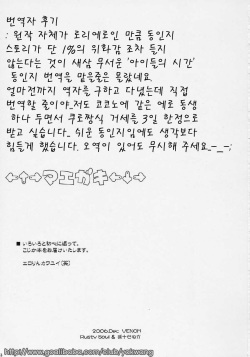 번역자 후기
: 원작 자체가 로리에로인 만큼 동인지
스토리가 단 1%의 위화감 조차 들지
않는다는 것이 새삼 무서운 '아이들의 시간'
동인지 번역을 맡을줄은 몰랐네요.
얼마전까지 역자를 구하고 다녔는데 직접
번역할 줄이야..저도 코코노에 같은 에로 동생
하나 두면서 쿠로짱식 거세를 3일 한정으로
받고 싶습니다.. 쉬운 동인지임에도 생각보다
힘들게 했습니다. 오역이 있어도 무시해 주세요.-_-;
←↑→マエガキ←↓→
■ いろいろと初心に返って、
こじか本をお届けいたします。
エロりんカワユイ(笑)
2006.Dec VENOM
Rusty Soul &
http://www.goolbabe.com/club/yakwang